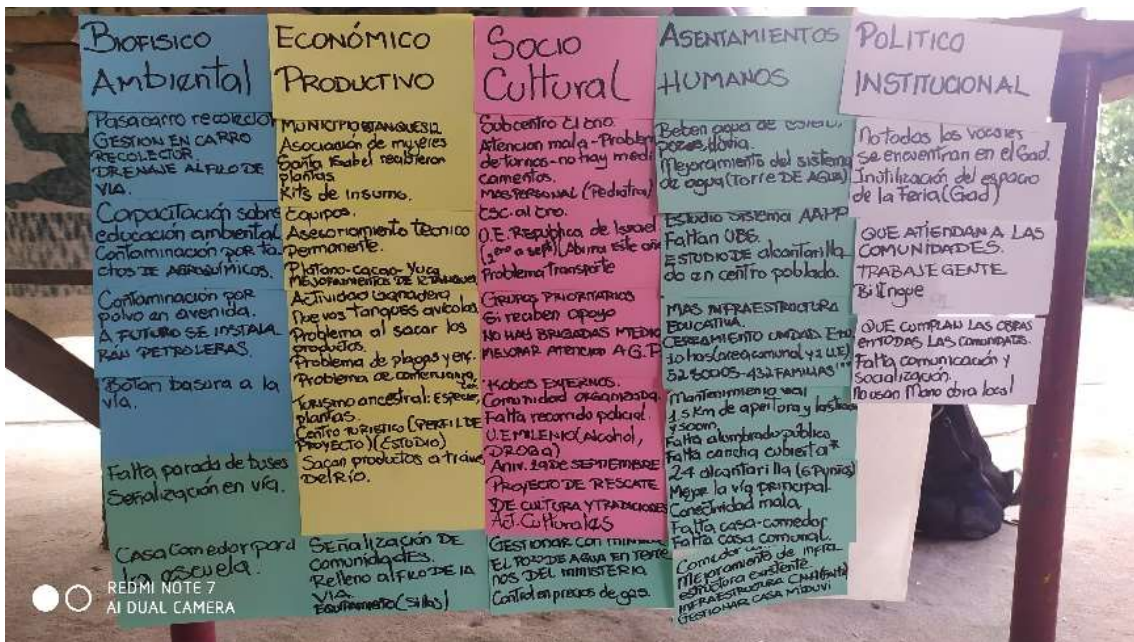 BIOFISICO
AMBIENTAL
Pasa carro recolector
GESTION EN CARRO
RECOLECTOR
DRENAJE AL FILO DE
VIA.
Capacitación sobre
educación ambiental
Contaminación por ta
chos DE AGROQUÍMICOS.
Contaminación por
polvo en avenida.
A FUTURO SE INSTALA
RAN PETROLERAS.
Botan basura a la
vía.
Falta parada de buses
Señalización en vía.
Casa Comedor para
la escuela.
ECONÓMICO
PRODUCTIVO
MUNICIPIO 12
Asociación de mujeres
Santa Isabel recibieron
plantas
Kits de insumo.
Equipos.
Asesoramiento tecnico
Permanente.
Platano-cacao-Yuca
MEJORAMIENTOS DE 12 TANQUES
Actividad Ganadera
Nuevos tanques avicolas
Problema al sacar los
productos.
Problema de plagas y enf.
Problema de
Turismo ancestral: Especie,
plantas.
Centro TURISTICO (PERFIL DE
PROYECTO) (ESTUDIO)
Sacan productos a través
Del Río.
Señalización DE
comunidades.
Relleno al FILO DE LA
VIA.
Equipamiento (Sillas)
Socio
Cultural
Subcentro El Eno.
Atencion mala - Problema
de turnos - no hay medi
camentos.
MAS PERSONAL (Pediatra)
Esc. al Eno.
U.E. Republica de Israel
(2do a sept) (Abrira este año
Problema Transporte
GRUPOS PRIORITARIOS
Si reciben apoyo
NO HAY BRIGADAS MEDIC
MEJORAR ATENCION A G.P
Robos EXTERNOS.
Comunidad organizada.
Falta recorrido policial.
U.E MILENIO (Alcohol,
DROGA)
Aniv. 29 DE SEPTIEMBRE
PROYECTO DE RESCATE
DE CULTURA Y TRADICIONES
Act. Culturales
GESTIONAR CON
EL POZO DE AGUA EN TERRE
NOS DEL MINISTERIO
Control en precios de gas.
ASENTAMIENTOS
HUMANOS
Beben agua de estero,
pozos, lluvia.
Mejoramiento del sistema
de agua (Torre DE AGUA)
Estudio sistema AAPP
Faltan UBS.
ESTUDIO DE alcantarilla
do en centro poblado.
MAS INFRAESTRUCTURA
EDUCATIVA
CERRAMIENTO UNIDAD EDU.
10 has (area comunal y 1 UE)
32 SOCIOS - 432 FAMILIAS
Mantenimiento vial
1.5 Km de apertura y lastrado
y 500m.
Falta alumbrado público
Falta cancha cubierta*
24 alcantarilla (6 Puntos)
Mejor la vía principal
Conectividad mala.
Falta casa-comedor
Falta casa comunal.
Comedor
Mejoramiento de infra
estructura existente
INFRAESTRUCTURA CNH
GESTIONAR CASA MIDUVI
POLITICO
INSTITUCIONAL
No todos los vocales
se encuentran en el Gad.
Inutilización del espacio
de la Feria (Gad)
QUE ATIENDAN A LAS
COMUNIDADES.
TRABAJE GENTE
Bilingue
QUE CUMPLAN LAS OBRAS
EN TODAS LAS COMUNIDADES.
Falta comunicación y
socialización.
No usan Mano obra local
REDMI NOTE 7
AI DUAL CAMERA